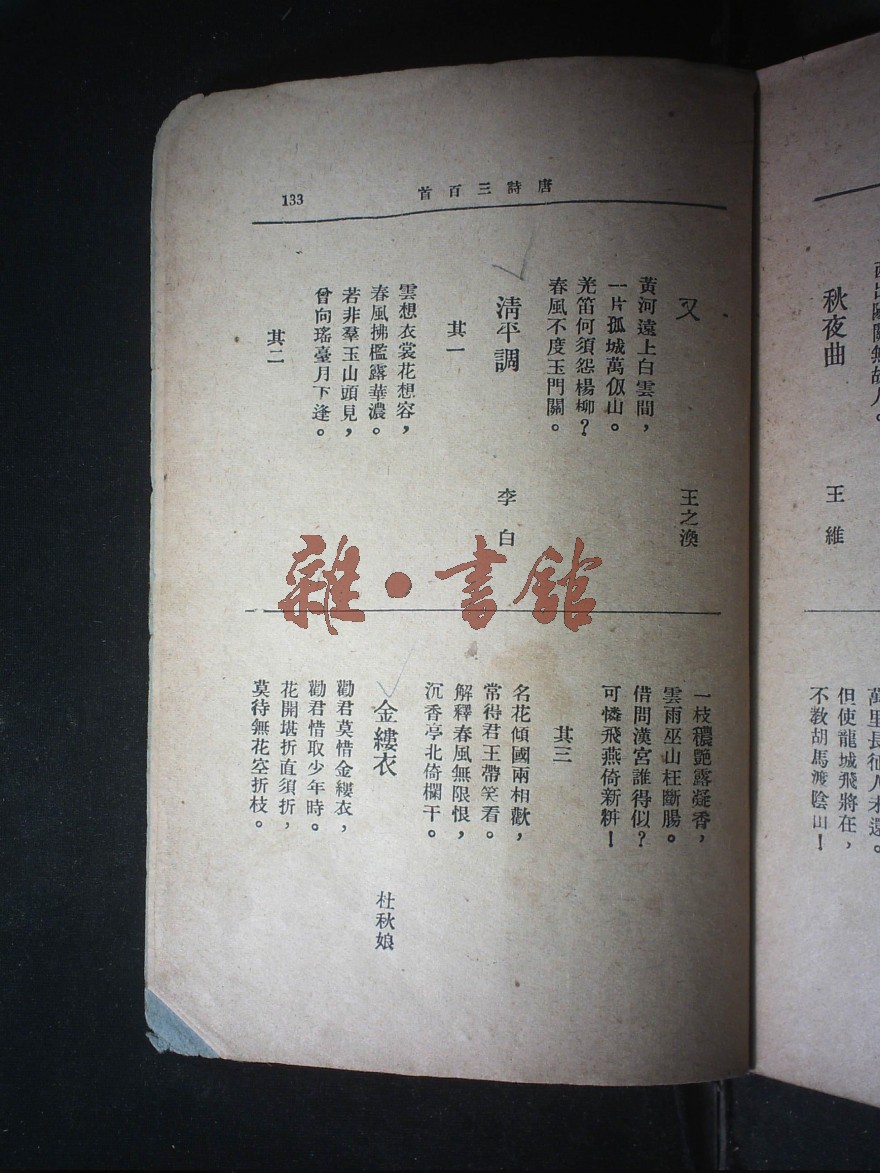 西出陽關無故人。
秋夜曲 王維
萬里長征人未還。
但使龍城飛將在，
不教胡馬渡陰山！
唐詩三百首
133
又 王之渙
黃河遠上白雲間，
一片孤城萬仭山。
羌笛何須怨楊柳？
春風不度玉門關。
清平調 李白
其一
雲想衣裳花想容，
春風拂檻露華濃。
若非羣玉山頭見，
曾向瑤臺月下逢。
其二
一枝穠艷露凝香，
雲雨巫山枉斷腸。
借問漢宮誰得似？
可憐飛燕倚新粧！
其三
名花傾國兩相歡，
常得君王帶笑看。
解釋春風無限恨，
沉香亭北倚欄干。
金縷衣 杜秋娘
勸君莫惜金縷衣，
勸君惜取少年時。
花開堪折直須折，
莫待無花空折枝。
雜·書館